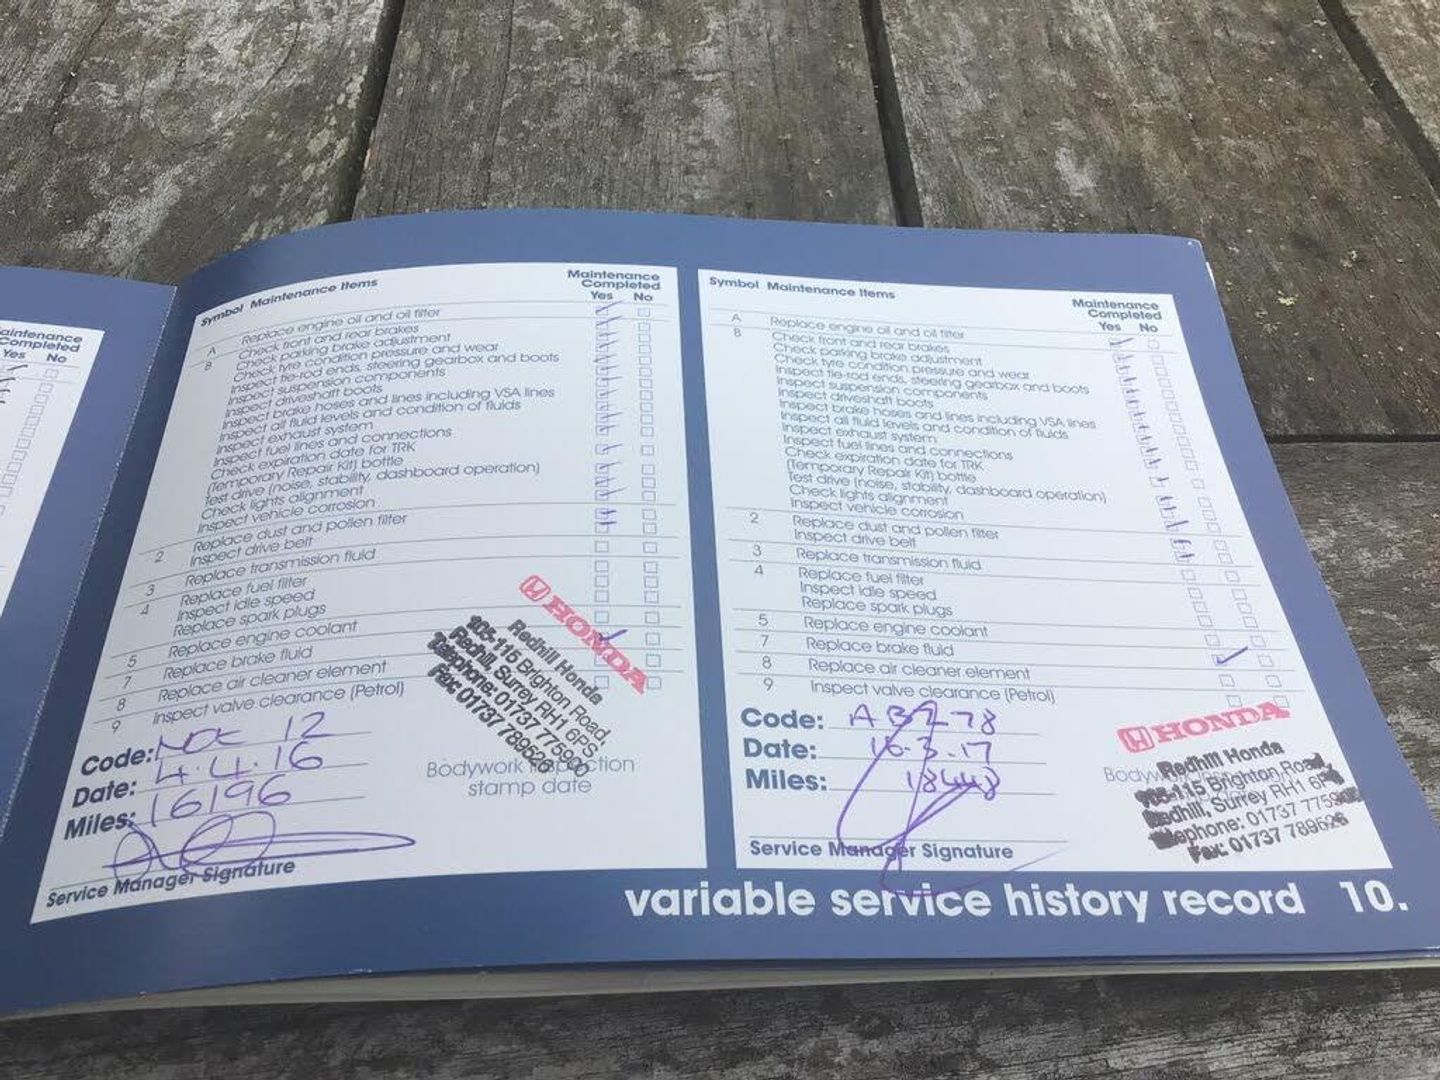 aintenance
Completed
Yes No
Symbol Maintenance Items
Maintenance
Completed
Yes No
A Replace engine oil and oil filter
B Check front and rear brakes
Check parking brake adjustment
Check tyre condition pressure and wear
Inspect tie-rod ends, steering gearbox and boots
Inspect suspension components
Inspect driveshaft boots
Inspect brake hoses and lines including VSA lines
Inspect all fluid levels and condition of fluids
Inspect exhaust system
Inspect fuel lines and connections
Check expiration date for TRK
(Temporary Repair Kit) bottle
Test drive (noise, stability, dashboard operation)
Check lights alignment
Inspect vehicle corrosion
2 Replace dust and pollen filter
Inspect drive belt
3 Replace transmission fluid
4 Replace fuel filter
Inspect idle speed
Replace spark plugs
5 Replace engine coolant
7 Replace brake fluid
8 Replace air cleaner element
9 Inspect valve clearance (Petrol)
Code: 12
Date: 4.4.16
Miles: 16196
Service Manager Signature
HONDA
Redhill Honda
105-115 Brighton Road,
Redhill, Surrey RH1 6PS
Telephone: 01737 775900
Fax: 01737 789626
Bodywork Inspection
stamp date
Symbol Maintenance Items
Maintenance
Completed
Yes No
A Replace engine oil and oil filter
B Check front and rear brakes
Check parking brake adjustment
Check tyre condition pressure and wear
Inspect tie-rod ends, steering gearbox and boots
Inspect suspension components
Inspect driveshaft boots
Inspect brake hoses and lines including VSA lines
Inspect all fluid levels and condition of fluids
Inspect exhaust system
Inspect fuel lines and connections
Check expiration date for TRK
(Temporary Repair Kit) bottle
Test drive (noise, stability, dashboard operation)
Check lights alignment
Inspect vehicle corrosion
2 Replace dust and pollen filter
Inspect drive belt
3 Replace transmission fluid
4 Replace fuel filter
Inspect idle speed
Replace spark plugs
5 Replace engine coolant
7 Replace brake fluid
8 Replace air cleaner element
9 Inspect valve clearance (Petrol)
Code:
Date: 16.3.17
Miles: 18448
Service Manager Signature
HONDA
Redhill Honda
105-115 Brighton Road,
Redhill, Surrey RH1 6PS
Telephone: 01737 775900
Fax: 01737 789626
variable service history record 10.